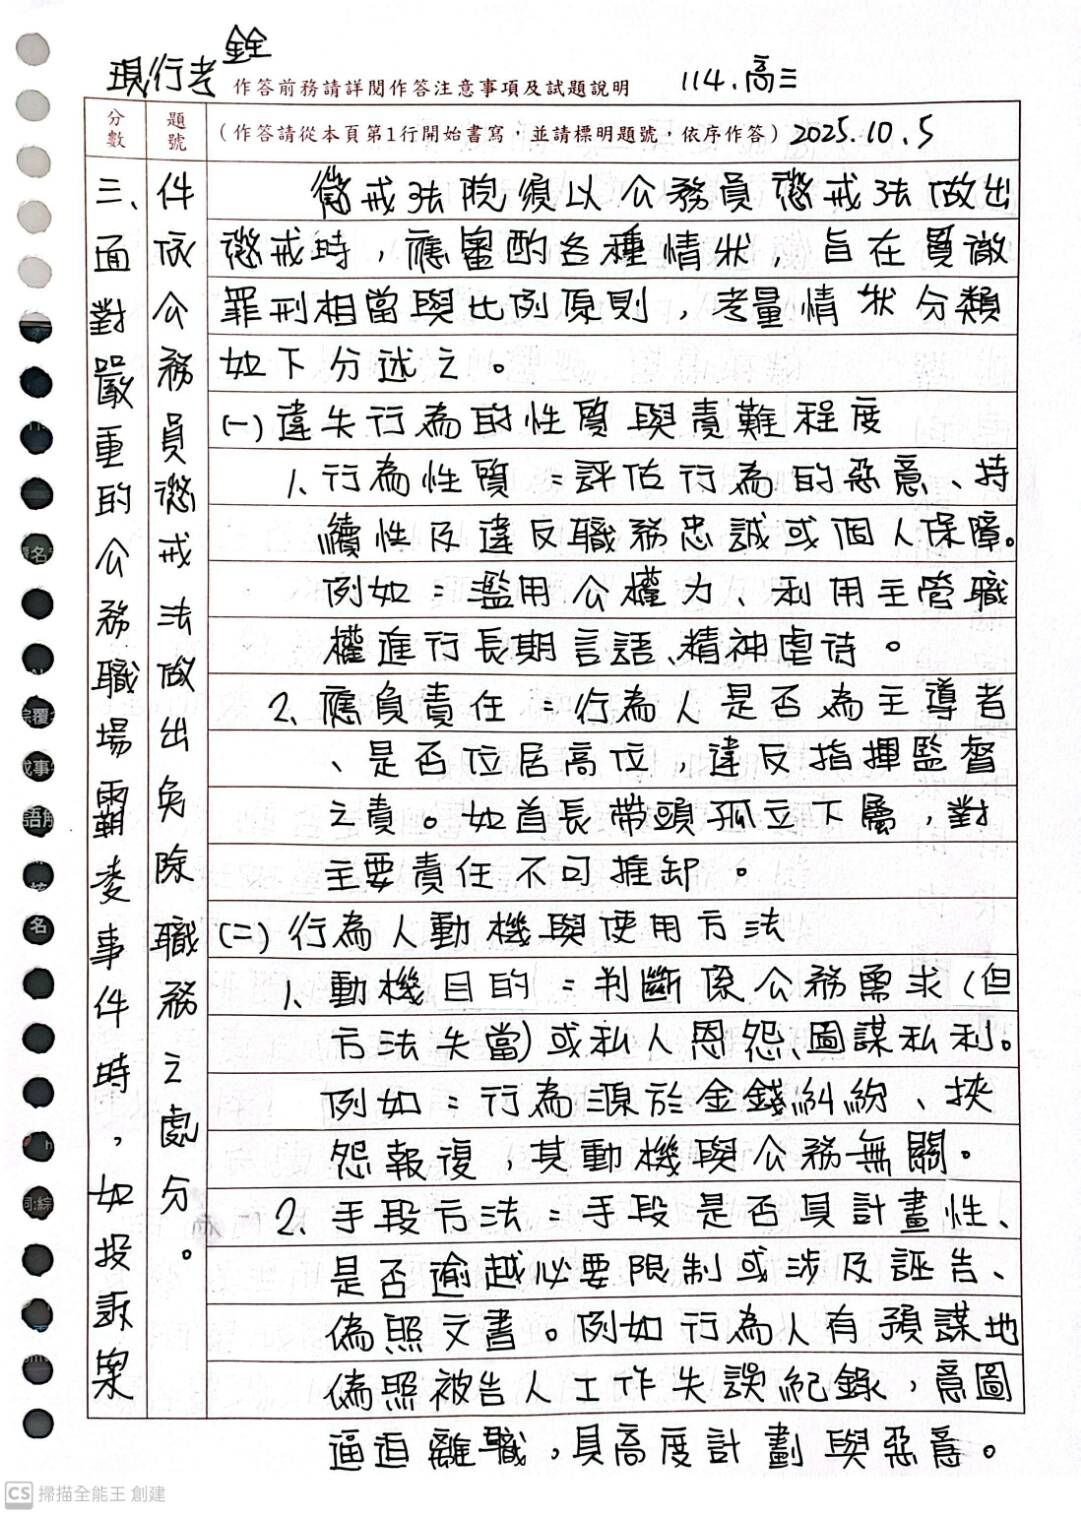 銓
現行考
作答前務請詳閱作答注意事項及試題說明
114.高三
分數
題號
(作答請從本頁第1行開始書寫，並請標明題號，依序作答)
2025.10.5
三、面對嚴重的公務職場霸凌事件時，如投訴案
件依公務員懲戒法做出免除職務之處分。
懲戒法院須以公務員懲戒法做出
懲戒時，應審酌各種情狀，旨在貫徹
罪刑相當與比例原則，考量情狀分類
如下分述之。
(一)違失行為的性質與責難程度
1、行為性質：評估行為的惡意、持
續性及違反職務忠誠或個人保障。
例如：濫用公權力、利用主管職
權進行長期言語、精神虐待。
2、應負責任：行為人是否為主導者
、是否位居高位，違反指揮監督
之責。如首長帶頭孤立下屬，對
主要責任不可推卸。
(二)行為人動機與使用方法
1、動機目的：判斷係公務需求(但
方法失當)或私人恩怨、圖謀私利。
例如：行為源於金錢糾紛、挾
怨報復，其動機與公務無關。
2、手段方法：手段是否具計畫性、
是否逾越必要限制或涉及誣告、
偽照文書。例如行為人有預謀地
偽照被告人工作失誤紀錄，意圖
逼迫離職，具高度計劃與惡意。
名
綜覆
成事
語解
名
CS 掃描全能王 創建